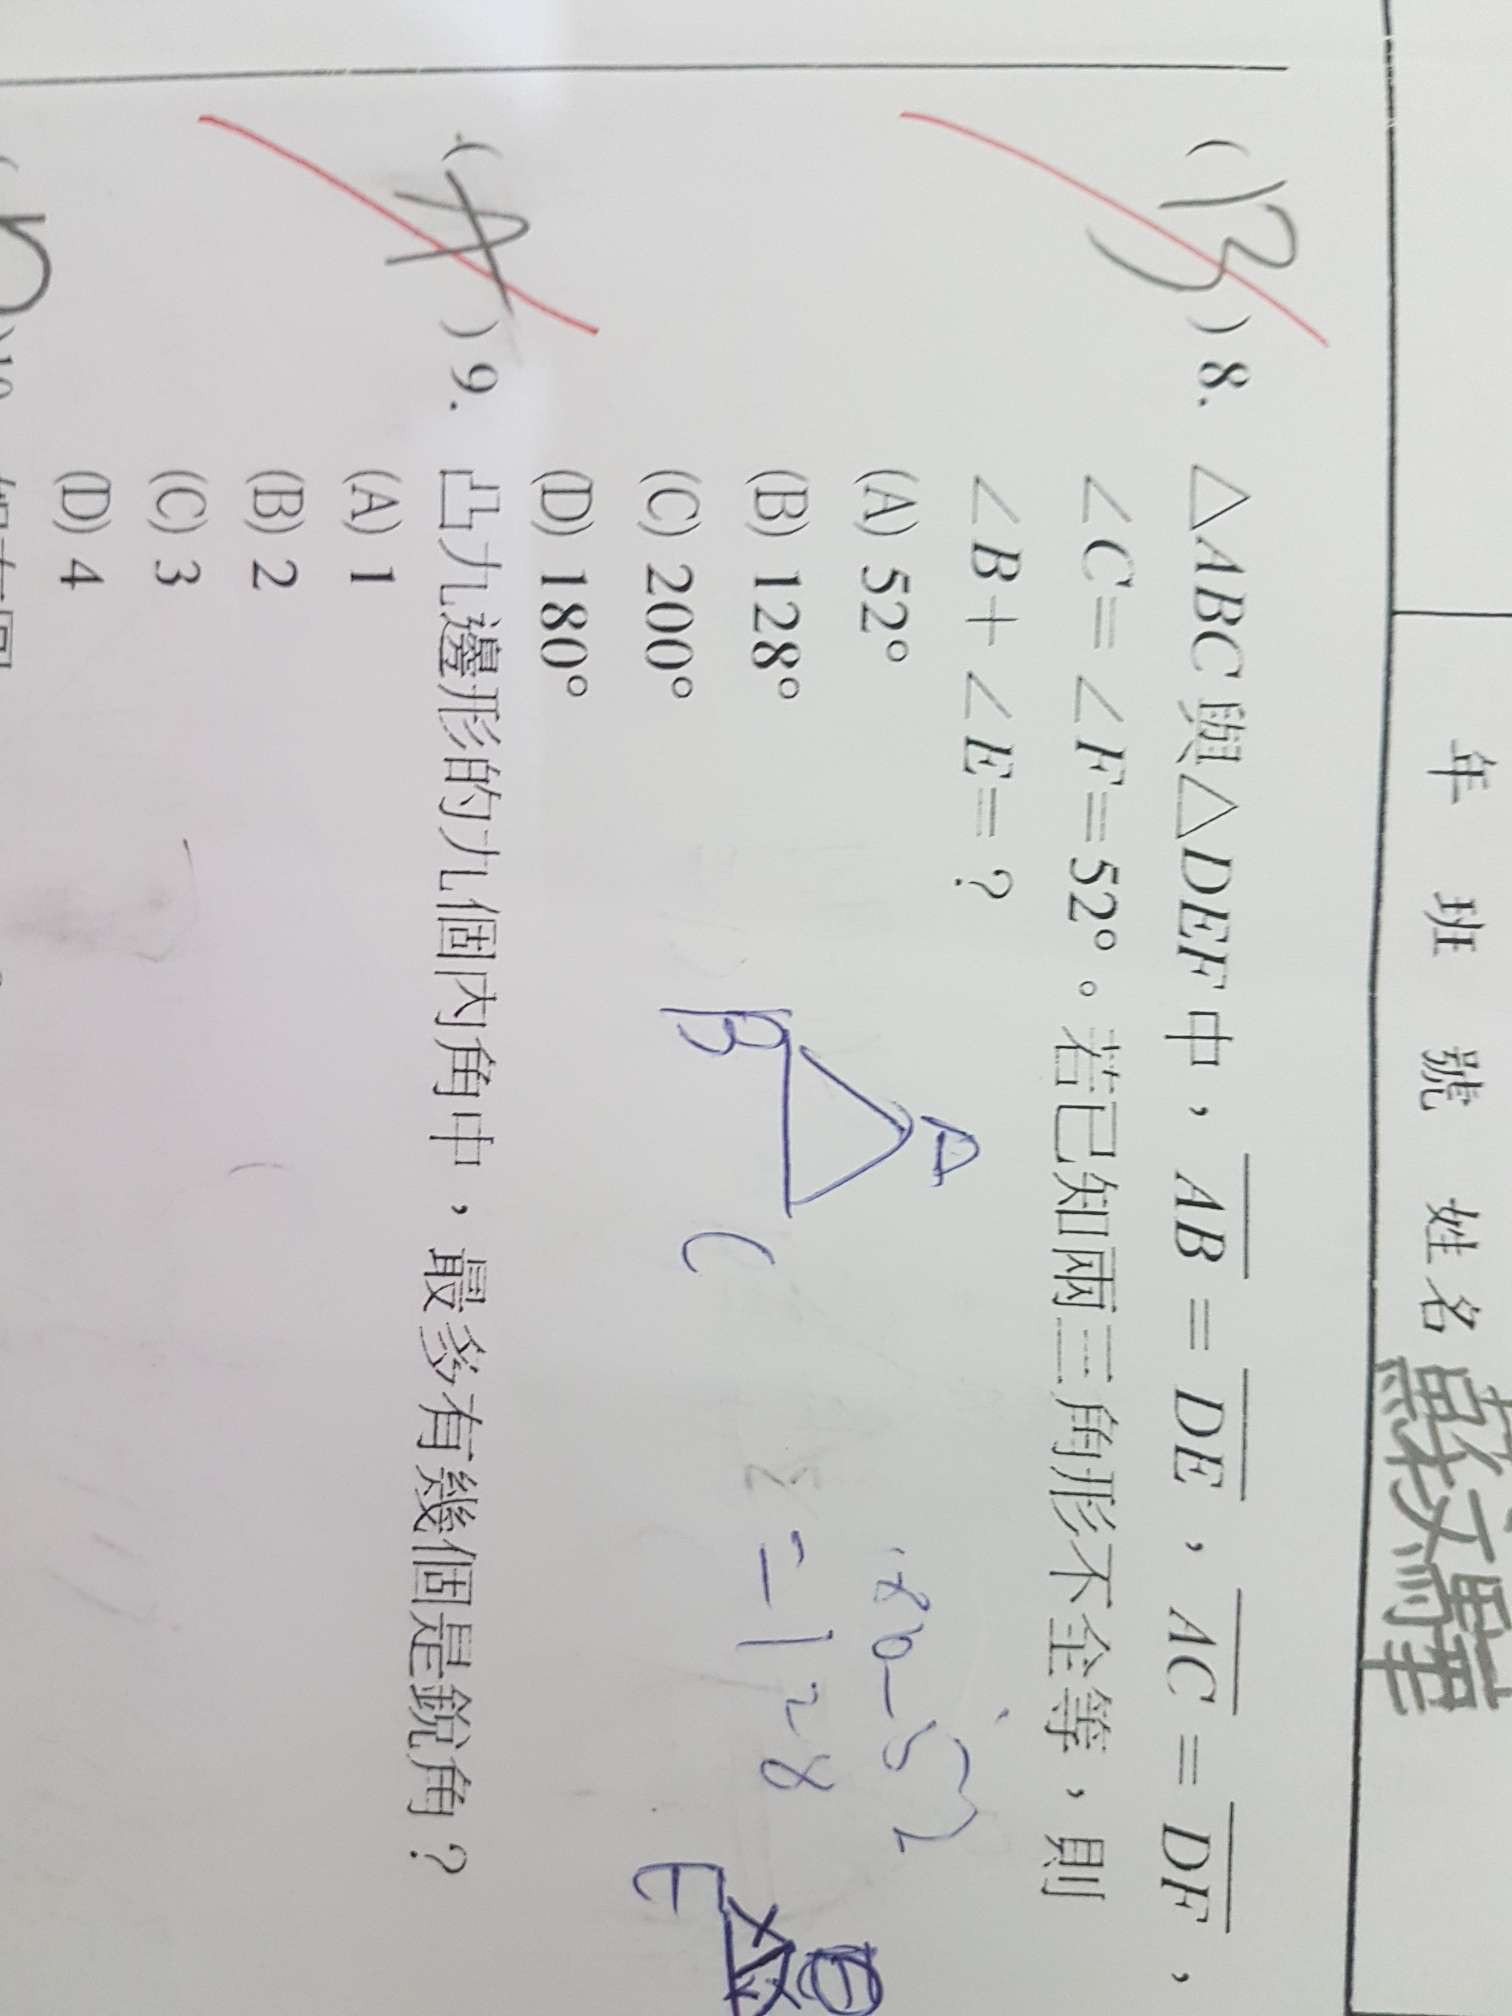 年 班 號 姓名
( B ) 8. △ABC 與△DEF 中，AB = DE，AC = DF，
∠C = ∠F = 52°。若已知兩三角形不全等，則
∠B + ∠E = ？
(A) 52°
(B) 128°
(C) 200°
(D) 180°
A
B
C
180-52
=128
E
( A ) 9. 凸九邊形的九個內角中，最多有幾個是銳角？
(A) 1
(B) 2
(C) 3
(D) 4